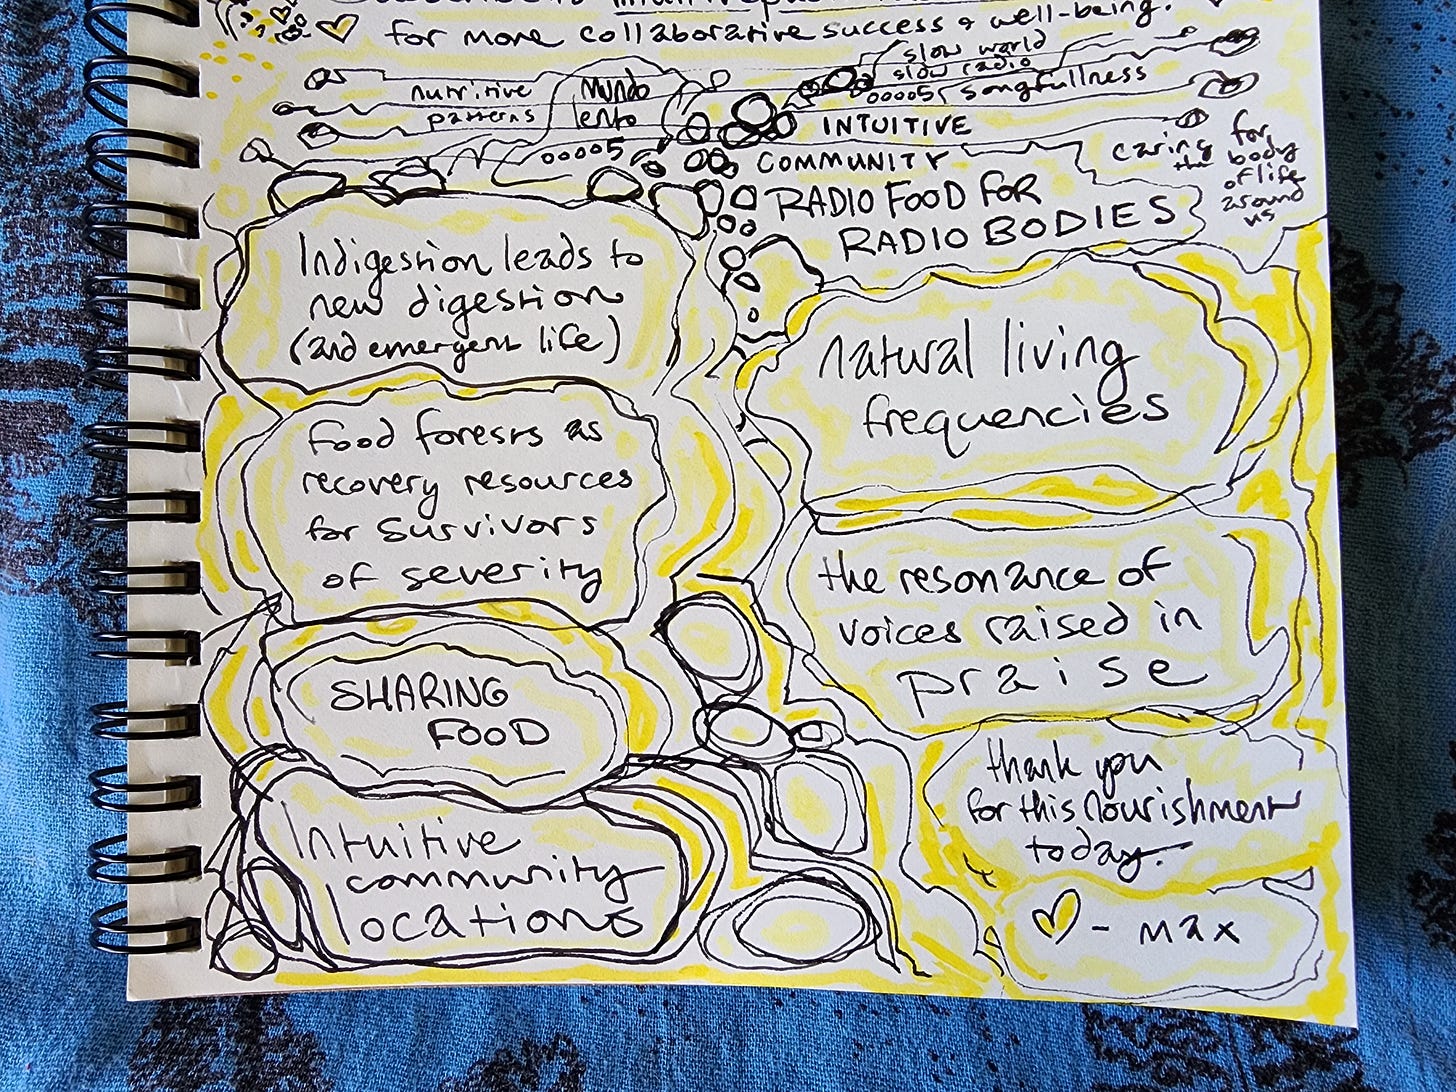 for more collaborative success & well-being!
nutritive
patterns
mundo
lento
00005
slow world
slow radio
00005 songfullness
INTUITIVE
COMMUNITY
RADIO FOOD FOR
RADIO BODIES
caring for
the body
of life
around
us
Indigestion leads to
new digestion
(and emergent life)
Food forests as
recovery resources
for survivors
of severity
SHARING
FOOD
Intuitive
community
locations
natural living
frequencies
the resonance of
voices raised in
praise
thank you
for this nourishment
today.
- max